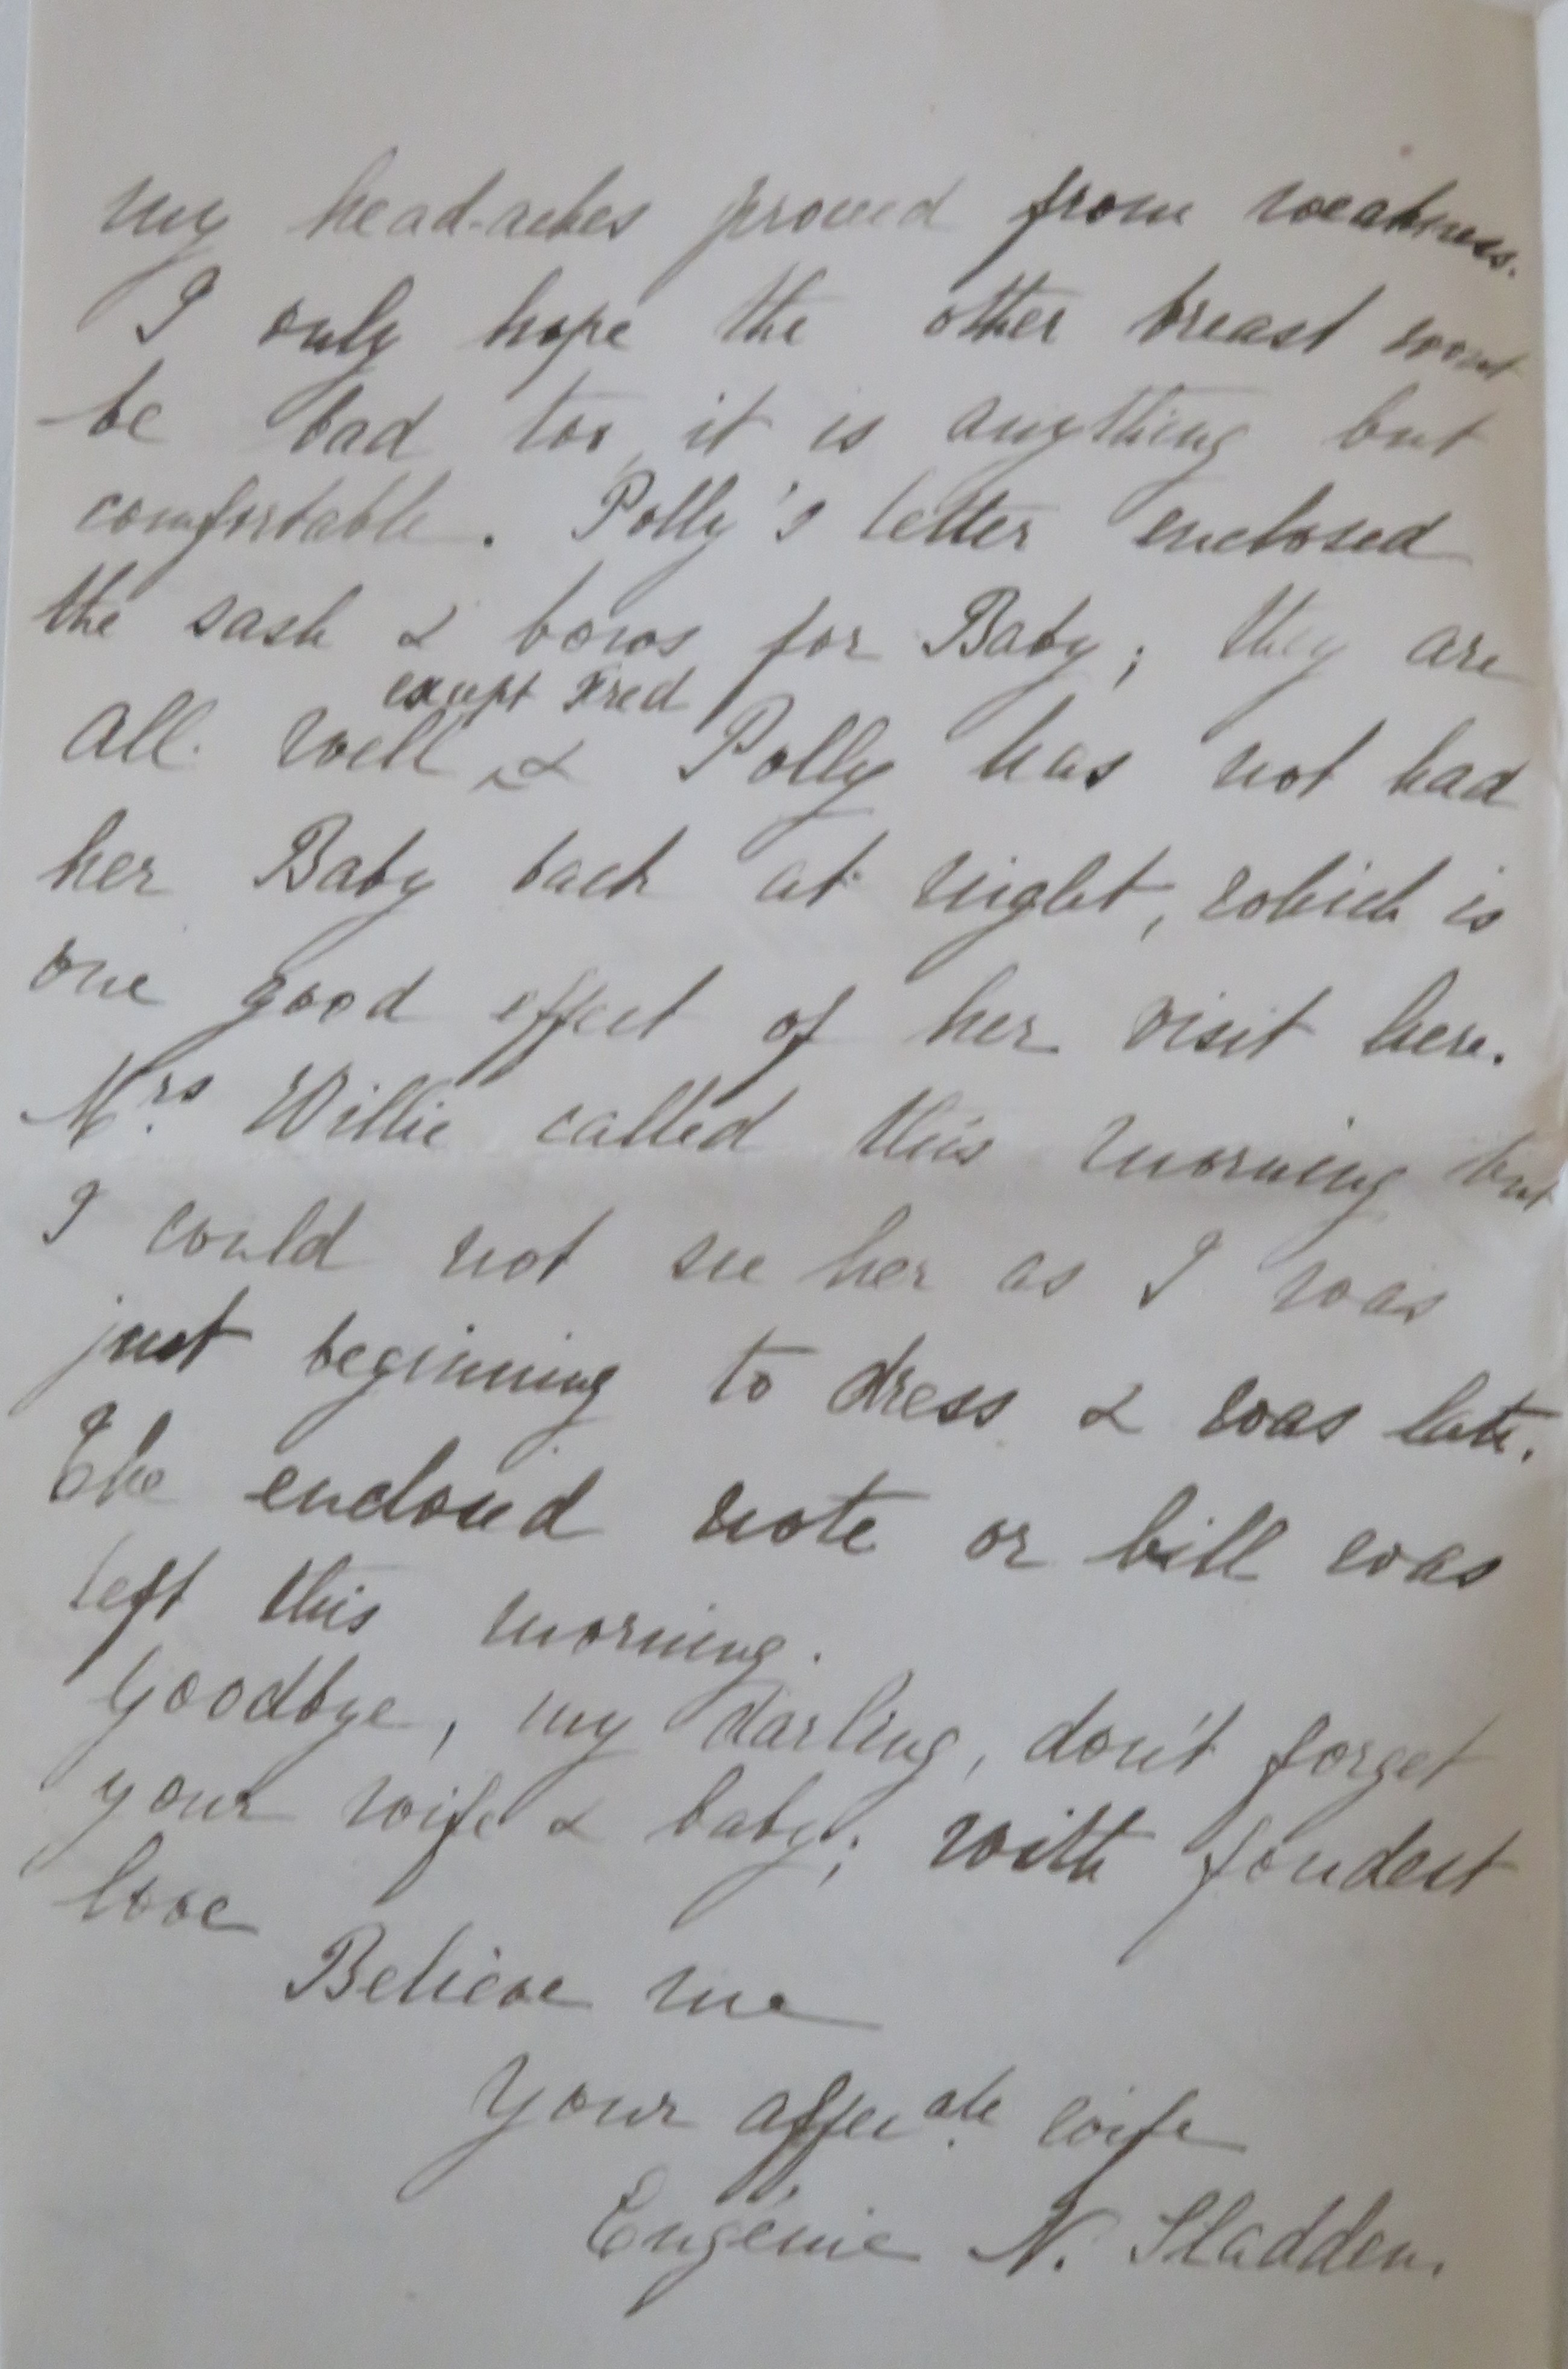 my head-aches proved from weakness.
I only hope the other breast wont
be bad too, it is anything but
comfortable. Polly's letter enclosed
the sash & bows for Baby; they are
except Fred
all well ^ & Polly has not had
her Baby back at night, which is
one good effect of her visit here.
Mrs. Willie called this morning but
I could not see her as I was
just beginning to dress & was late.
The enclosed note or bill was
left this morning.
Goodbye, my darling, don't forget
your wife & baby; with fondest
love
Believe me
Your affecate. wife
Eugénie N. Sladden.